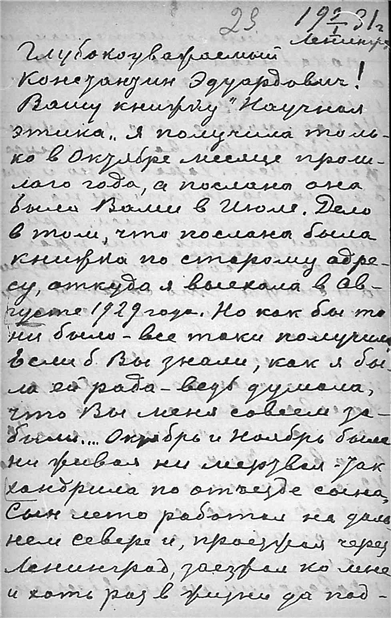 23
19 9/I 31 г.
Ленинград
Глубокоуважаемый
Константин Эдуардович!
Вашу книжку "Научная
этика„ я получила толь-
ко в Октябре месяце прош-
лого года, а послана она
была Вами в Июле. Дело
в том, что послана была
книжка по старому адре-
су, откуда я выехала в Ав-
густе 1929 года. Но как бы то
ни было - все таки получила
Если б Вы знали, как я бы-
ла ей рада - ведь думала,
что Вы меня совсем за-
были.... Октябрь и Ноябрь была
ни живая ни мертвая - так
хандрила по отъезде сына
Сын лето работал на даль
нем севере и, проезжая через
Ленинград, заезжал ко мне
и хоть раз в жизни да под-